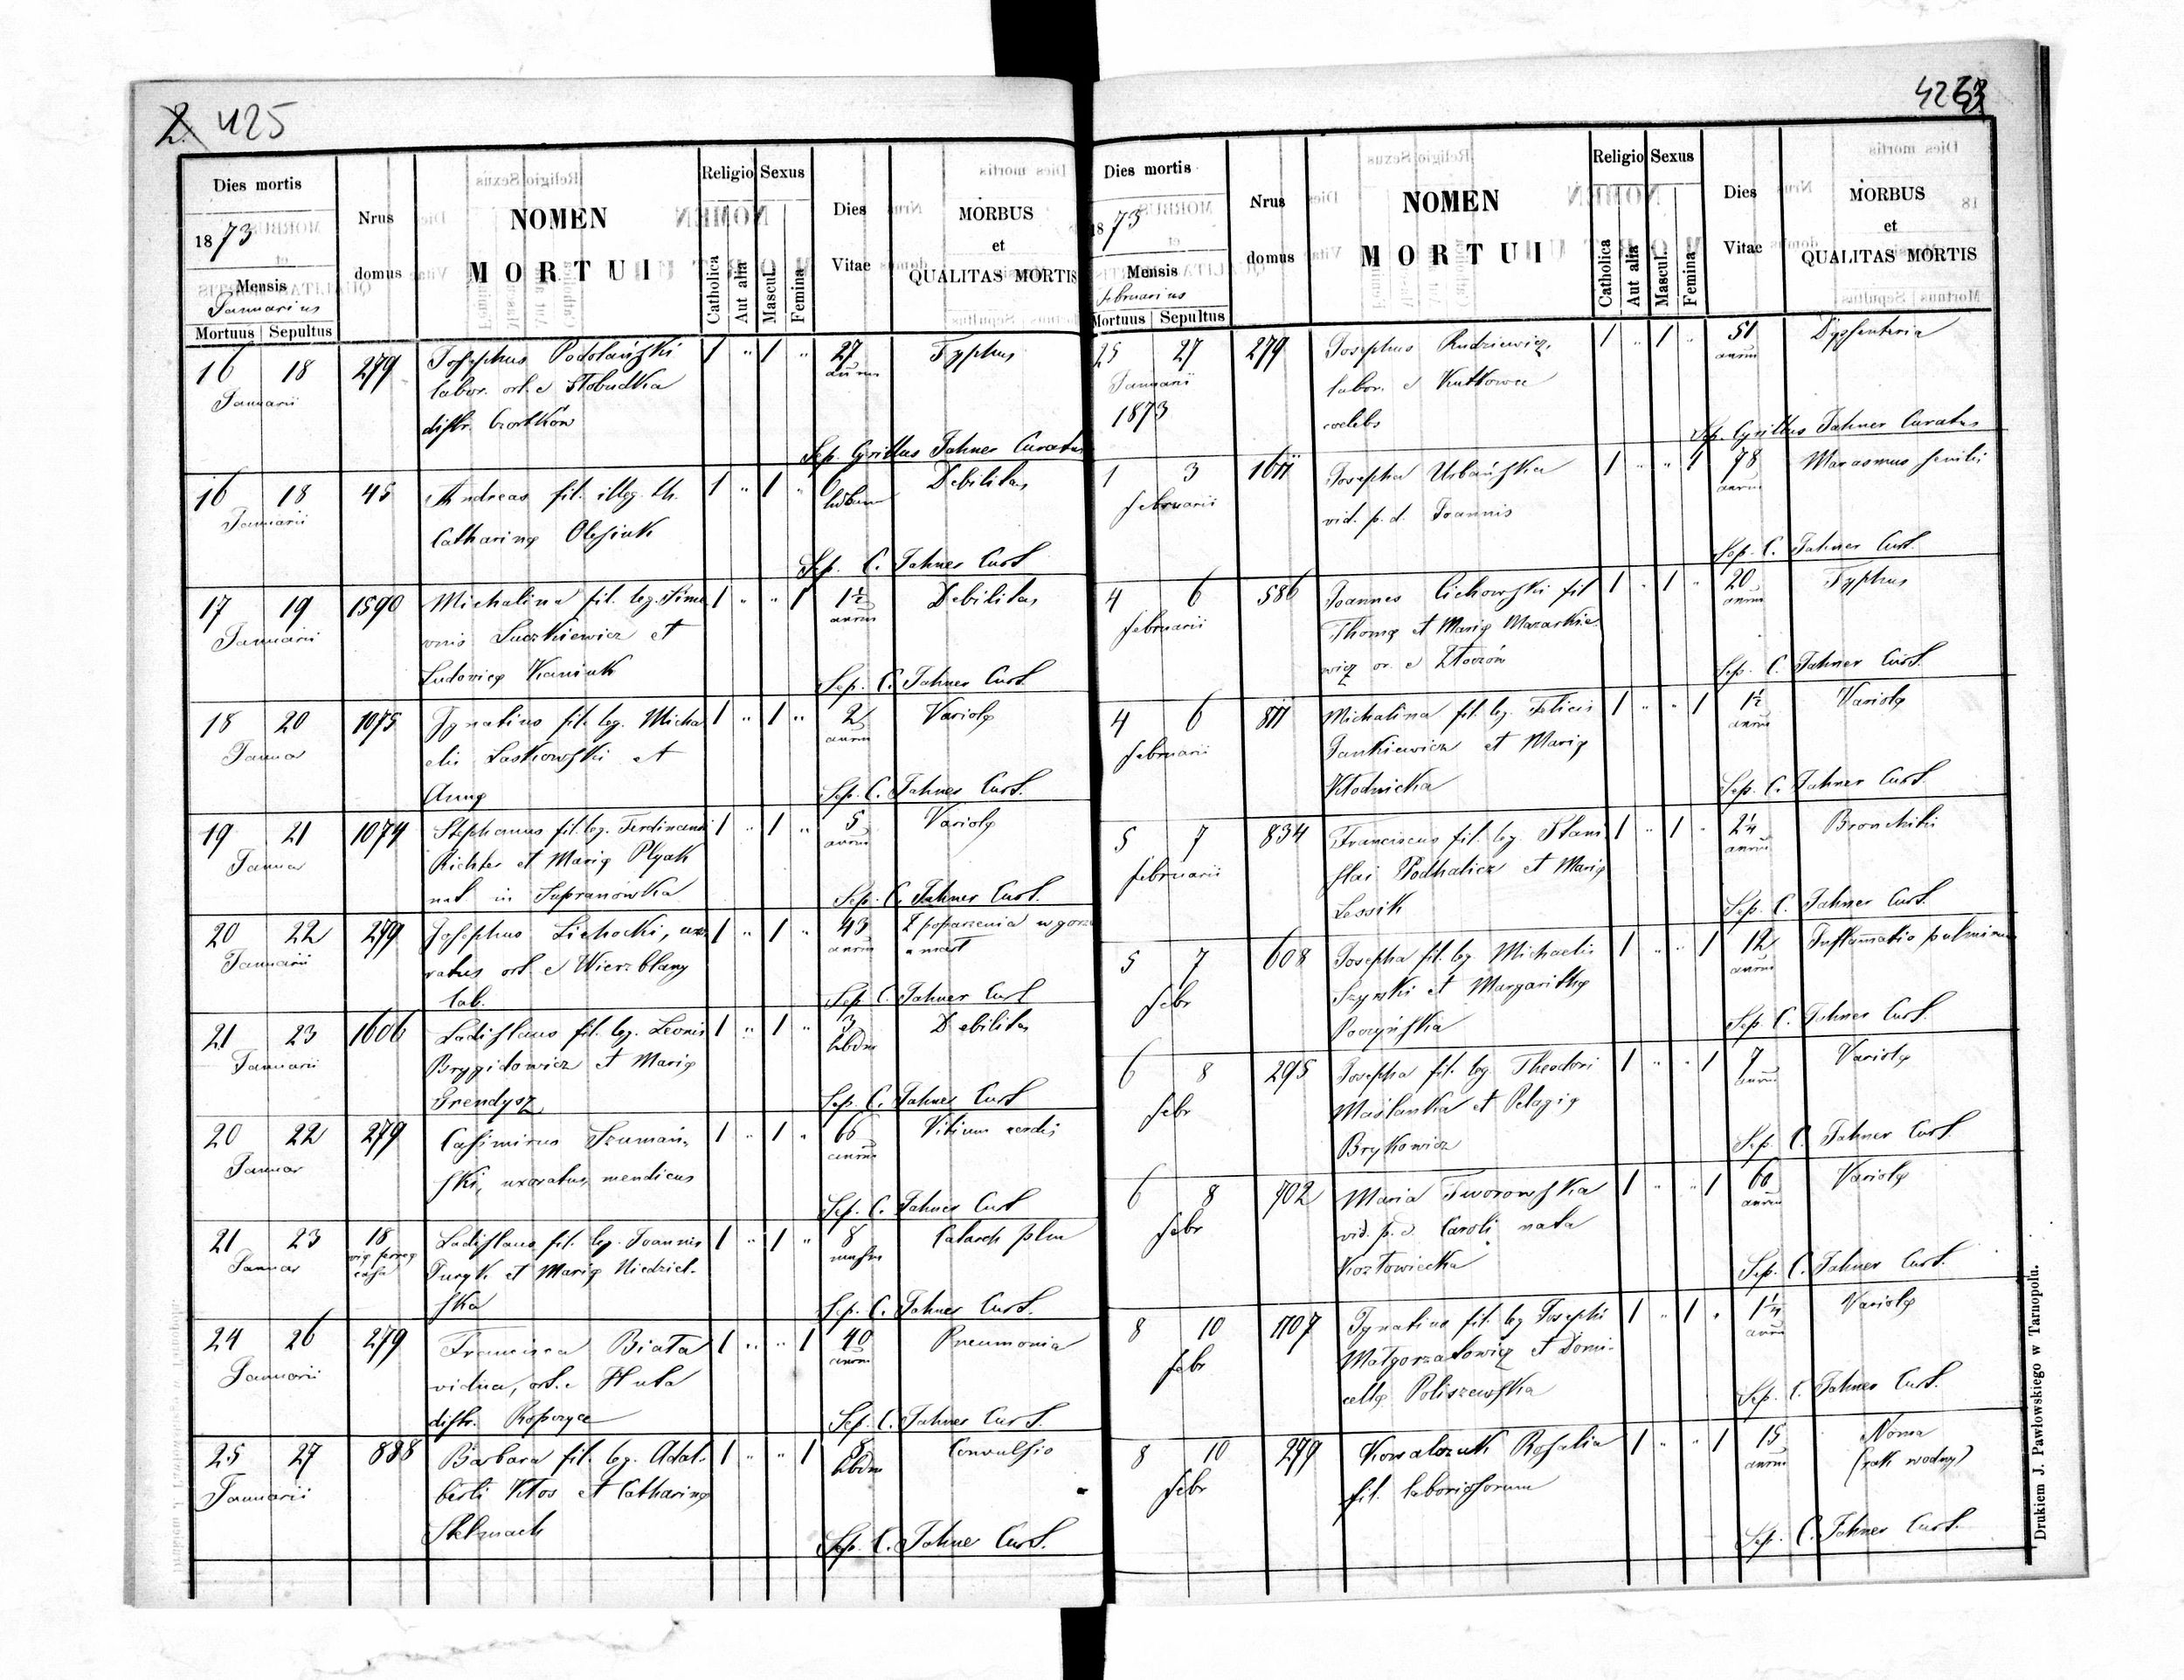 2. 425
Dies mortis
1873
Mensis
Januarius
Mortuus Sepultus
Nrus domus
NOMEN
MORTUI
Religio
Catholica
Aut alia
Sexus
Mascul.
Femina
Dies Vitae
MORBUS
et
QUALITAS MORTIS
16 18 279 Josephus Podolański 1 " 1 " 27 Typhus
Januarii labor. ort. e Słobudka annor
distr. Czortków
Sep. Cyrillus Jahner Curatus
16 18 45 Andreas fil. illeg. th. 1 " 1 " 6 Debilitas
Januarii Catharinę Olesiuk hebdom
Sep. C. Jahner Curt
17 19 1590 Michalina fil. leg. Simo 1 " " 1 1½ Debilitas
Januarii onis Luczkiewicz et annor
Ludovicę Kaniuk
Sep. C. Jahner Curt.
18 20 1075 Ignatius fil. leg. Micha 1 " 1 " 2 Variolę
Janua elis Laskowski et annor
Annę
Sep. C. Jahner Curt.
19 21 1074 Stephanus fil. leg. Ferdinandi 1 " 1 " 5 Variolę
Janua Richter et Marię Plyak annor
nat in Supranówka
Sep. C. Jahner Curt.
20 22 279 Josephus Lichocki, uxo 1 " 1 " 43 Z poparzenia w gorz
Januarii ratus ort. e Wierzblany annor
lab.
Sep C. Jahner Curt
21 23 1606 Ladislaus fil. leg. Leonis 1 " 1 " 3 Debilitas
Januarii Brygidowicz et Marię hbdm
Grendysz
Sep. C. Jahner Curt
20 22 279 Casimirus Szumań, 1 " 1 " 66 Vitium cordis
Januar ski, uxoratus, mendicus annor
Sep. C. Jahner Curt
21 23 18 Ladislaus fil. leg. Joannis 1 " 1 " 8 Catarch plm
Januar Puryk et Marię Niedziel- mensm
ska
Sep. C. Jahner Curt.
24 26 279 Francisca Biała 1 " " 1 40 Pneumonia
Januarii vidua, ort. e Huta annor
distr. Ropczyce
Sep. C. Jahner Curt.
25 27 888 Barbara fil. leg. Adal- 1 " " 1 8 Convulsio
Januarii berti Kłos et Catharinę hbdm
Stelmach
Sep. C. Jahne Curt.
426
Dies mortis
1873
Mensis
februarius
Mortuus Sepultus
Nrus domus
NOMEN
MORTUI
Religio
Catholica
Aut alia
Sexus
Mascul.
Femina
Dies Vitae
MORBUS
et
QUALITAS MORTIS
25 27 279 Josephus Rudziewicz, 1 " 1 " 51 Dyssenteria
Januarii labor. e Kutkowce annor
1873 coelebs
Sep. Cyrillus Jahner Curatus
1 3 Josepha Urbańska 1 " " 1 78 Marasmus senilis
februarii vid. p. d. Joannis annor
Sep. C. Jahner Curt.
4 6 586 Joannes Cichowski fil 1 " 1 " 20 Typhus
februarii Thomę et Marię Mazarkie annor
wicz or. e Złoczów
Sep. C. Jahner Curt.
4 6 811 Michalina fil. leg. Felicis 1 " " 1 1½ Variolę
februarii Jankiewicz et Marię annor
Kłodnicka
Sep. C. Jahner Curt.
5 7 834 Franciscus fil. leg. Stani 1 " 1 " 2¼ Bronchitis
februarii slai Podhalicz et Marię annor
Lessik
Sep. C. Jahner Curt.
5 7 608 Josepha fil. leg. Michaelis 1 " " 1 12 Inflammatio pulmonum
febr Szynski et Margarithę annor
Poczyńska
Sep. C. Jahner Curt.
6 8 295 Josepha fil. leg. Theodori 1 " " 1 7 Variolę
febr Maślanka et Pelagię annor
Brykowicz
Sep. C. Jahner Curt.
6 8 702 Maria Tworowska 1 " " 1 60 Variolę
febr vid. p. d. Caroli nata annor
Kozłowiecka
Sep. C. Jahner Curt.
8 10 1107 Ignatius fil. leg Josephi 1 " 1 " 1¼ Variolę
febr Małgorzatowicz et Domi- annor
cellę Poliszewska
Sep. C. Jahner Curt.
8 10 279 Kowalczuk Rosalia 1 " " 1 15 Noma
febr fil. laboriosorum annor (rak wodny)
Sep. C. Jahner Curt.
Drukiem J. Pawłowskiego w Tarnopolu.